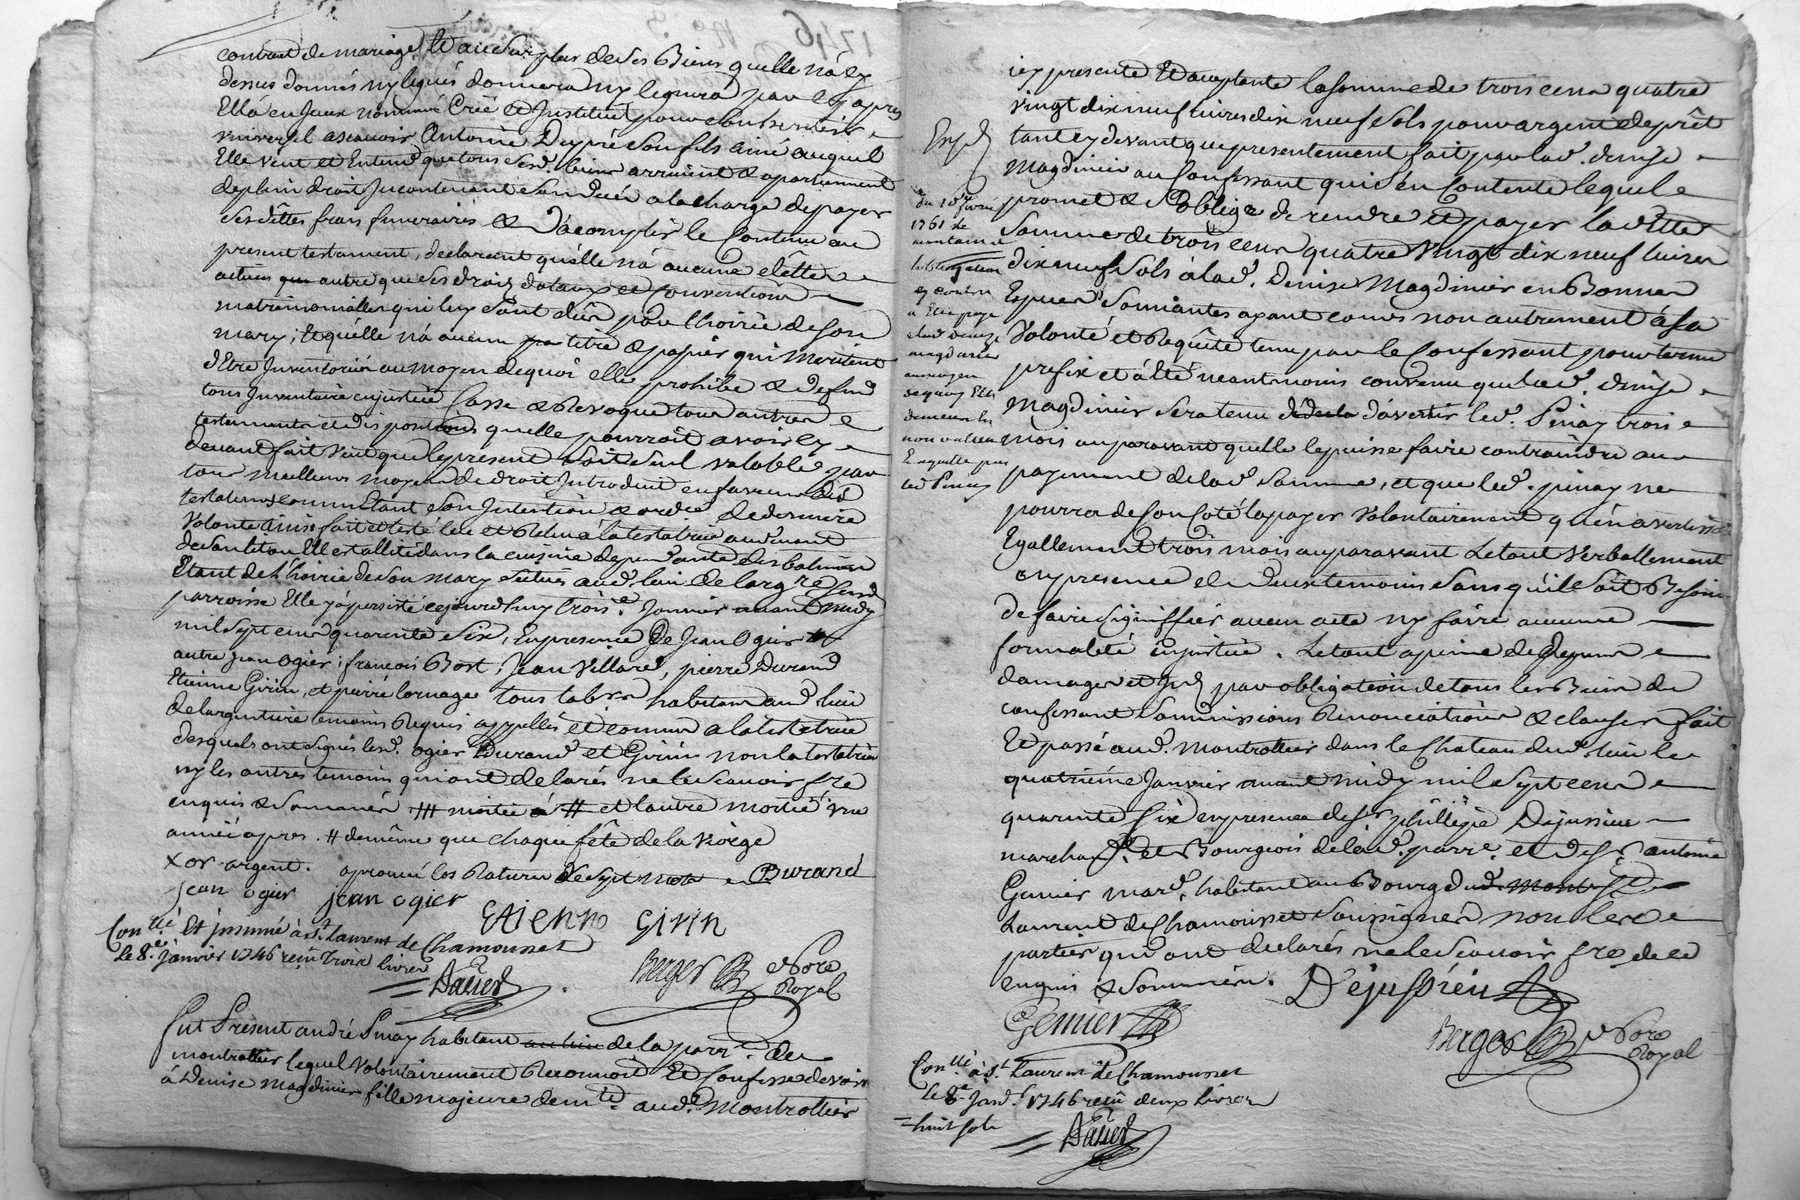 contract de mariage, Et au surplus de ses Biens quelle n'a cy
dessus donnés ny legués donnera ny leguera par cy apres
Ell'a en Jceux nommé Créé & Jnstitué pour son heritier
universel ascavoir Antoine Dupré Son fils ainé auquel
Elle veut et Entend que tous sesd. biens arrivent & apartiennent
de plein droit Jncontinant son decés a la charge de payer
Ses dettes frais funeraires & D'acomplir le Contenu au
present testament, declarant qu'elle n'a aucune dette
active que autre que ses droits dotaux et Conventions
matrimonialles qui luy sont dues par l'hoirie de son
mary, Et qu'elle n'a aucun titre & papier qui meritent
d'Etre Jnventoriés au moyen dequoi elle prohibe & defend
tous Jnventaire enjustice Casse & Revoque tous autres
testaments et dispositions quelle pourroit avoir cy
devant fait veut que le present soit seul valable par
tous meilleurs moyens de droit Jntroduit en faveur des
testateurs comme Etant son Jntention & ordre de derniere
Volonté ainsi fait et testé leu et Releu a la testatrice au devant
de son lit ou Ell'est allitée dans la cuisine dependante des batiments
Etant de l'hoirie de son mary situés aud. lieu de Larg.re susd.
parroisse Elle y a persisté cejourd'huy trois.e Janvier avant midy
mil sept cens quarente six, En presence de Jean Ogier
autre Jean Ogier, francois Bort, Jean Villard, pierre Durand
Etienne Girin, et pierre lornage tous lab.rs habitans aud. lieu
de largentiere temoins Requis appellés et connus a la testatrice
desquels ont signés lesd. Ogier Durand et Girin non la testatrice
ny les autres temoins qui ont declarés ne le scavoir fre
enquis & sommés # moitié a # et l'autre moitié une
année apres. # de même que chaque fête de la Vierge
x or argent. aprouvé les Rature de sept mots Durand
jean ogier jean ogier
ETienne Girin
Con.llé Et jnsinué à St. Laurent de Chamousset
Le 8.e janvier 1746 reçu trois Livres
Berger No.re Royal
Fut Présent andré Pinay habitant au lieu de la parr.e de
montrottier lequel volontairement Reconnoit Et Confesse devoir
à Denise magdinier fille majeure dem.te aud. Montrottier
icy presente Et acceptante la somme de trois cens quatre
vingt dix neuf livres dix neuf sols pour argent de prêt
Exp.é
tant cy devant que presentement fait par lad. denise
Magdinier au Confessant qui s'en Contente lequel
promet & s'oblige de rendre et payer la ditte
Somme de trois cens quatre vingt dix neuf livres
dix neuf Sols à lad. Denise Magdinier en Bonnes
Especes sonnantes ayant cours non autrement a sa
Volonté et Requête tenu par le Confessant pour terme
prefix et a'Eté neantmoins convenu que lad. denise
Magdinier Sera tenu d'avertir led. Pinay trois
mois auparavant quelle le puisse faire contraindre au
payement de lad. Somme, et que led. pinay ne
pourra de son coté la payer Volontairement qu'en avertissant
Egallement trois mois auparavant Le tout verballement
en presence de deux temoins sans qu'il soit Besoin
de faire signiffier aucun acte ny faire aucune
formalité enjustice. Le tout a peine de depens
damages et par obligation de tous les Biens du
confessant Soummissions Renonciations & clauses fait
Et passé aud. montrottier dans le Chateau dud. lieu le
quatrieme Janvier avant midy mil Sept cens
quarente six en presence de sr. philippe Dejussieu
marchand et Bourgeois de lad. parr.e et de sr. Antoine
Gemier mar.d habitant au Bourg de
Laurent de Chamousset soussignés non les
parties qui ont declarés ne le scavoir fre de ce
enquis & Sommés. D'ejussieu
Gemier
Berger No.re Royal
Con.llé à St. Laurent de Chamousset
Le 8.e Janv. 1746 reçu deux Livres
huit sols
du 10e fevrier
1761 le
montant de
l'obligation
cy contre
a Eté payé
a lad. Denize
magdinier
au moyen
dequoy Elle
demeure
non valeur
Et acquittée par
led Pinay